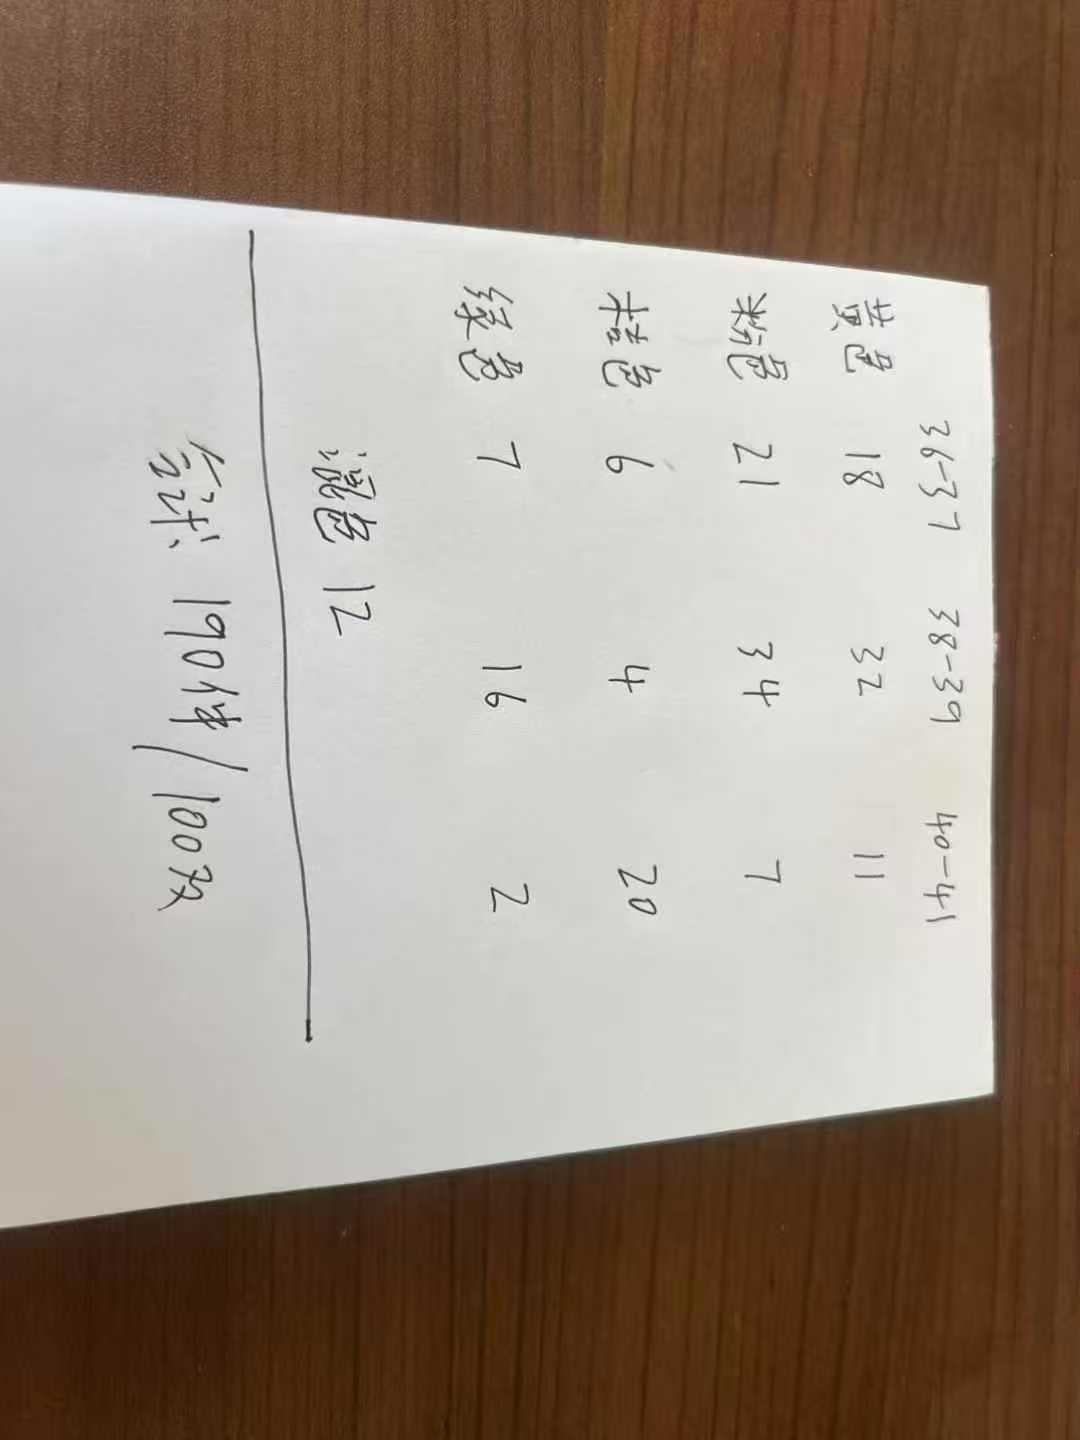 36-37 38-39 40-41
黄色 18 32 11
粉色 21 34 7
桔色 6 4 20
绿色 7 16 2
混色 12
合计 190件/100双